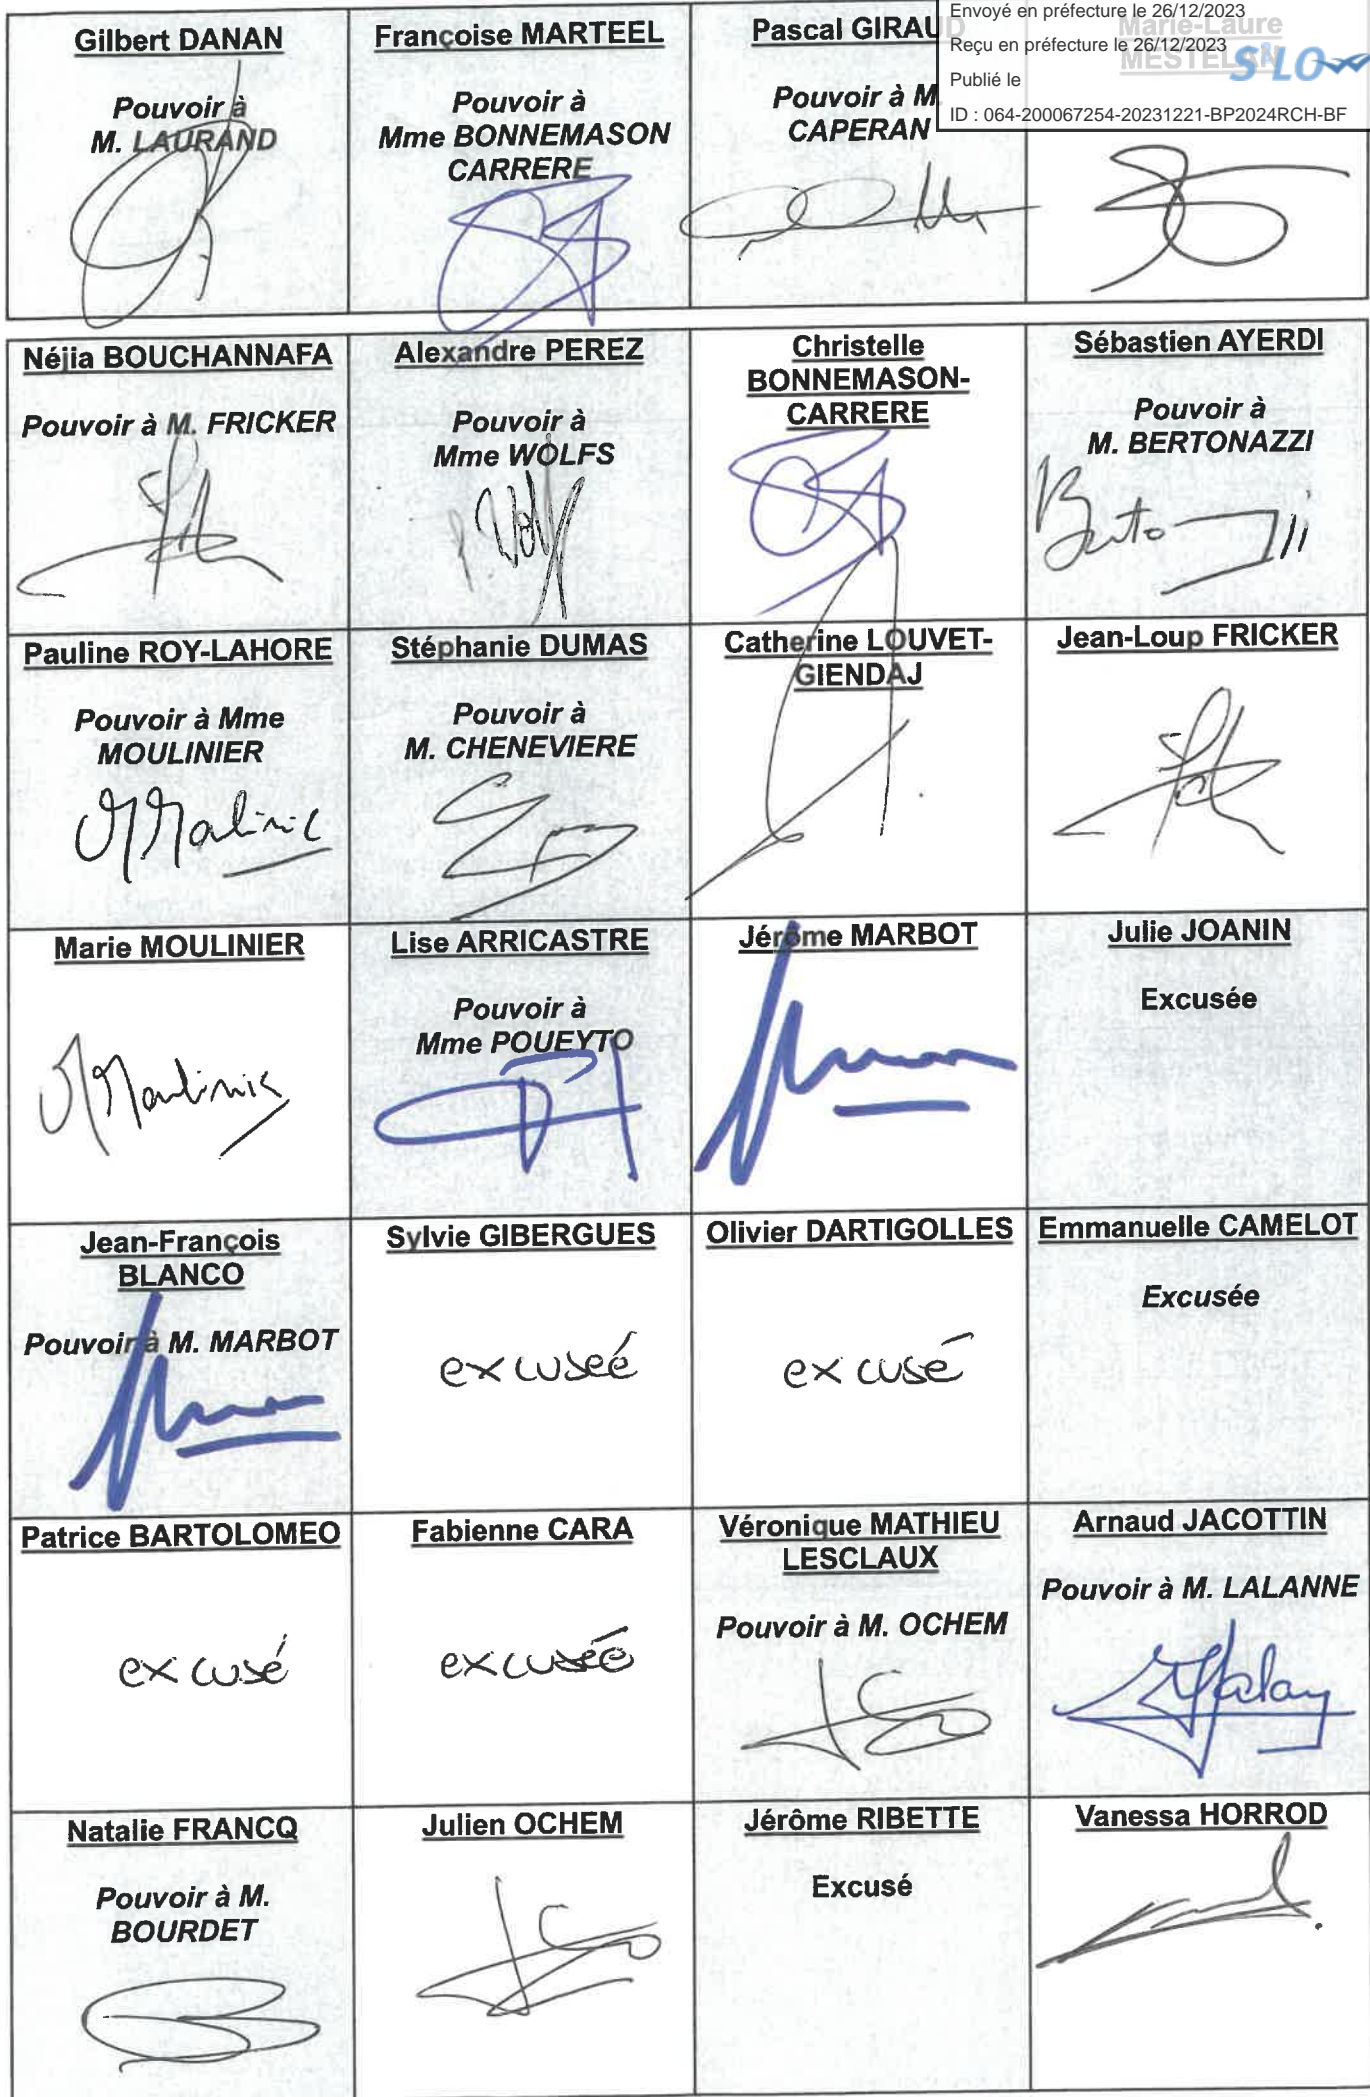 Envoyé en préfecture le 26/12/2023
Reçu en préfecture le 26/12/2023
Publié le
ID : 064-200067254-20231221-BP2024RCH-BF
S²LO
Gilbert DANAN
Pouvoir à
M. LAURAND
Françoise MARTEEL
Pouvoir à
Mme BONNEMASON
CARRERE
Pascal GIRAUD
Pouvoir à M.
CAPERAN
Marie-Laure
MESTELAN
Néjia BOUCHANNAFA
Pouvoir à M. FRICKER
Alexandre PEREZ
Pouvoir à
Mme WOLFS
Christelle
BONNEMASON-
CARRERE
Sébastien AYERDI
Pouvoir à
M. BERTONAZZI
Pauline ROY-LAHORE
Pouvoir à Mme
MOULINIER
Stéphanie DUMAS
Pouvoir à
M. CHENEVIERE
Catherine LOUVET-
GIENDAJ
Jean-Loup FRICKER
Marie MOULINIER
Lise ARRICASTRE
Pouvoir à
Mme POUEYTO
Jérôme MARBOT
Julie JOANIN
Excusée
Jean-François
BLANCO
Pouvoir à M. MARBOT
Sylvie GIBERGUES
excuseé
Olivier DARTIGOLLES
excusé
Emmanuelle CAMELOT
Excusée
Patrice BARTOLOMEO
excusé
Fabienne CARA
excusée
Véronique MATHIEU
LESCLAUX
Pouvoir à M. OCHEM
Arnaud JACOTTIN
Pouvoir à M. LALANNE
Natalie FRANCQ
Pouvoir à M.
BOURDET
Julien OCHEM
Jérôme RIBETTE
Excusé
Vanessa HORROD